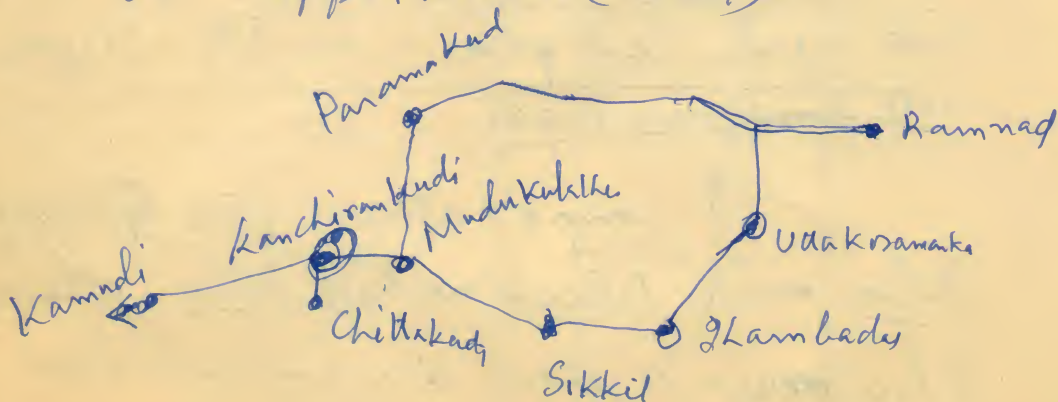 Paramakud
Ramnad
Kanchirankudi
Mudukulathu
Uttakosamanka
Kamudi
Chittakudy
Sikkil